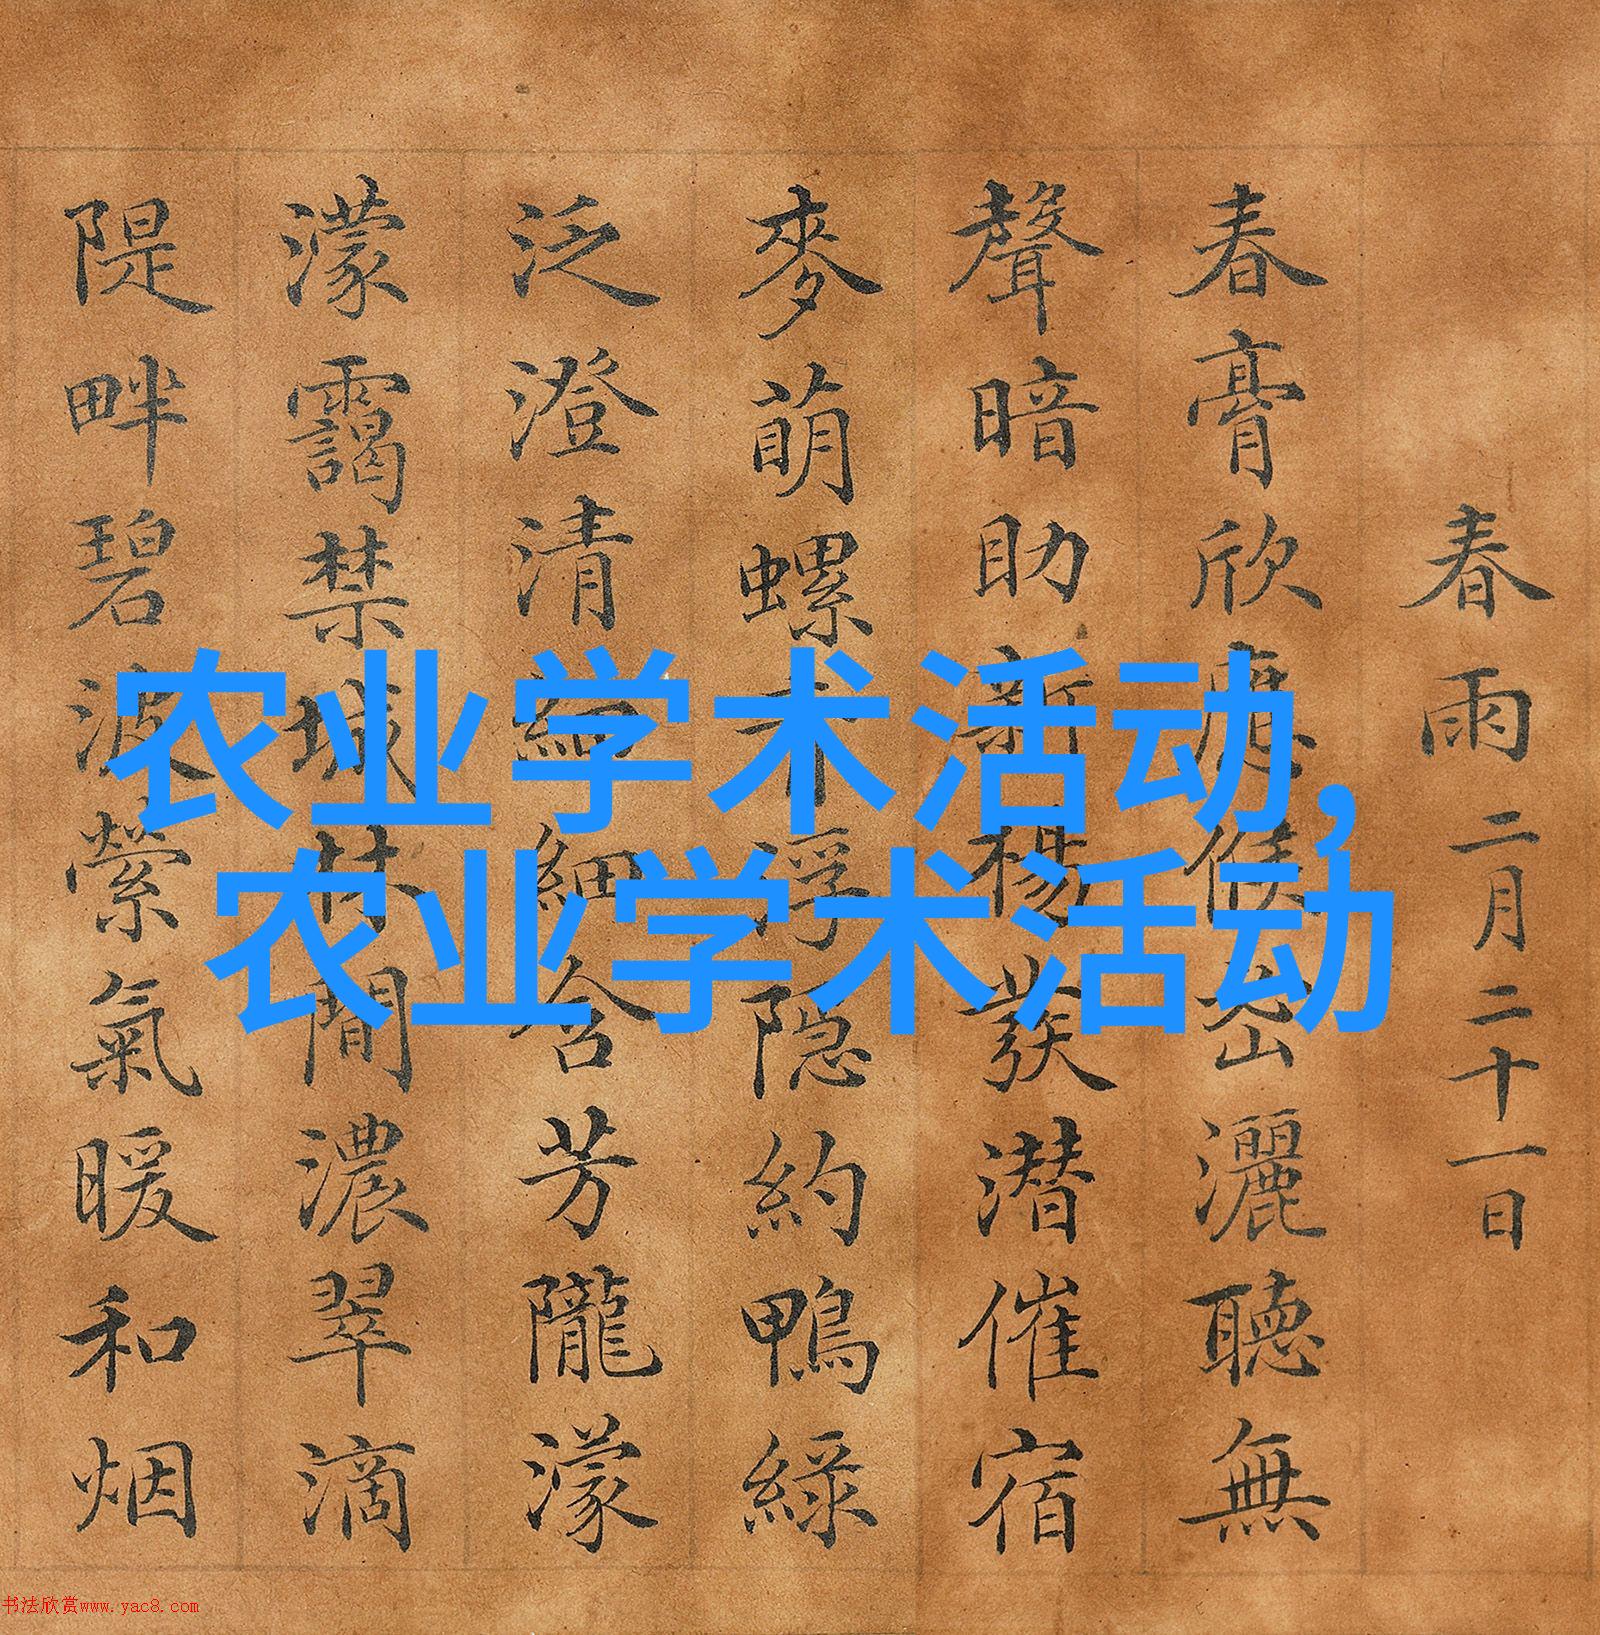 春雨 二月二十一日
春膏欣應候密灑聽無
聲暗助新楊發潜催宿
麥萌螺木浮隐約鴨緑
泛澄清細合芳隴濛
濛靄禁城林間濃翠滴
隄畔碧波縈氣暖和烟
农业学术活动,
农业学术活动
书法欣赏www.yac8.com